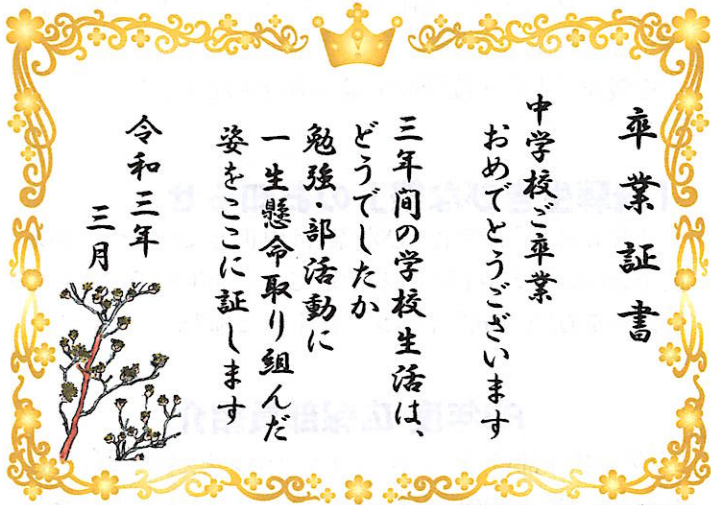 卒業証書
中学校ご卒業
おめでとうございます
三年間の学校生活は、
どうでしたか
勉強・部活動に
一生懸命取り組んだ
姿をここに証します
令和三年
三月